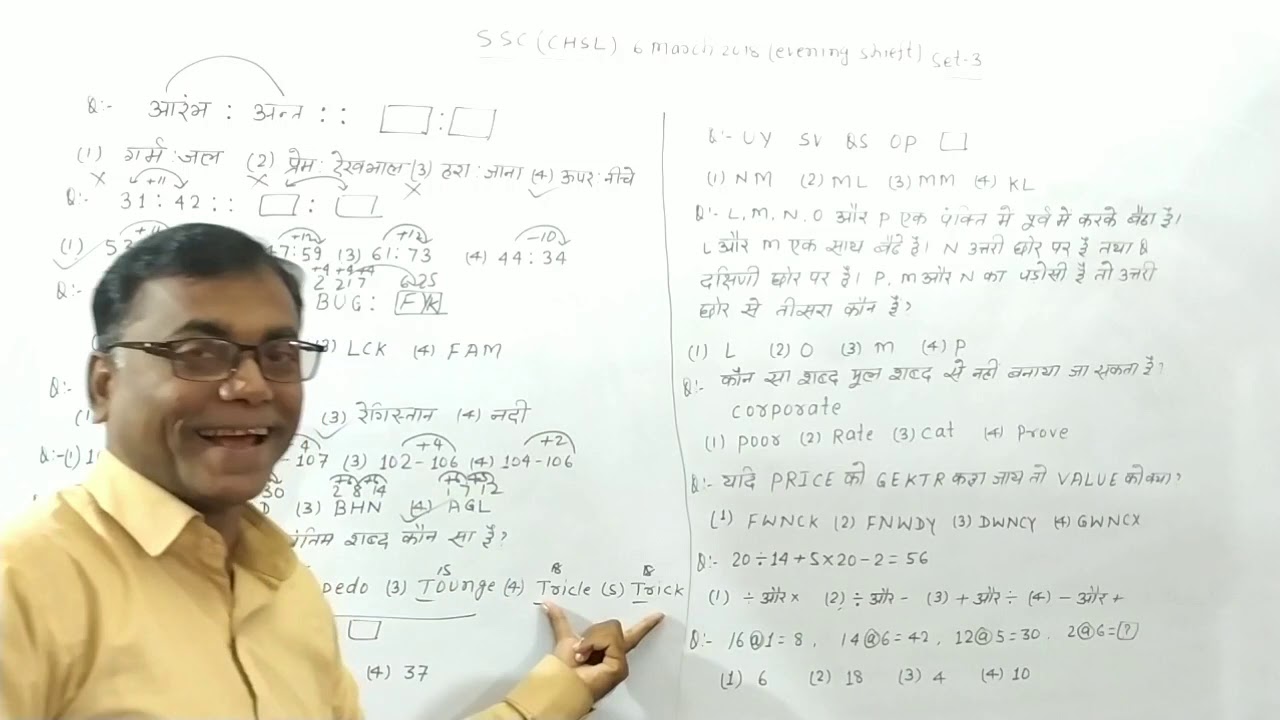 SSC (CHSL) 6 March 2018 (evening shieft) Set-3
Q:- आरंभ : अन्त : : □ : □
(1) गर्म : जल (2) प्रेम : देखभाल (3) हरा : जाना (4) ऊपर : नीचे
+11
Q:- 31 : 42 : : □ : □
+11 +12 +12 -10
(1) 53 47:59 (3) 61:73 (4) 44:34
+4 +4 +4
2 21 7 6 25
Q:- BUG : F K
(3) LCK (4) FAM
Q:-
(1) (3) रेगिस्तान (4) नदी
4 +4 +2
Q:-(1) 10 -107 (3) 102-106 (4) 104-106
30 2 8 14 1 7 12
D (3) BHN (4) AGL
अंतिम शब्द कौन सा है?
15 18 18
pedo (3) Tounge (4) Tricle (5) Trick
□
(4) 37
Q:- UY SV QS OP □
(1) NM (2) ML (3) MM (4) KL
Q:- L, M, N, O और P एक पंक्ति में पूर्व में करके बैठा है।
L और M एक साथ बैठे है। N उत्तरी छोर पर है तथा Q
दक्षिणी छोर पर है। P, M और N का पड़ोसी है तो उत्तरी
छोर से तीसरा कौन है?
(1) L (2) O (3) M (4) P
Q:- कौन सा शब्द मूल शब्द से नहीं बनाया जा सकता है?
corporate
(1) poor (2) Rate (3) Cat (4) Prove
Q:- यदि PRICE को GEKTR कहा जाय तो VALUE को क्या?
(1) FWNCK (2) FNWDY (3) DWNCY (4) GWNCX
Q:- 20÷14+5×20-2=56
(1) ÷ और × (2) ÷ और - (3) + और ÷ (4) - और +
Q:- 16@1=8, 14@6=42, 12@5=30, 2@6=?
(1) 6 (2) 18 (3) 4 (4) 10